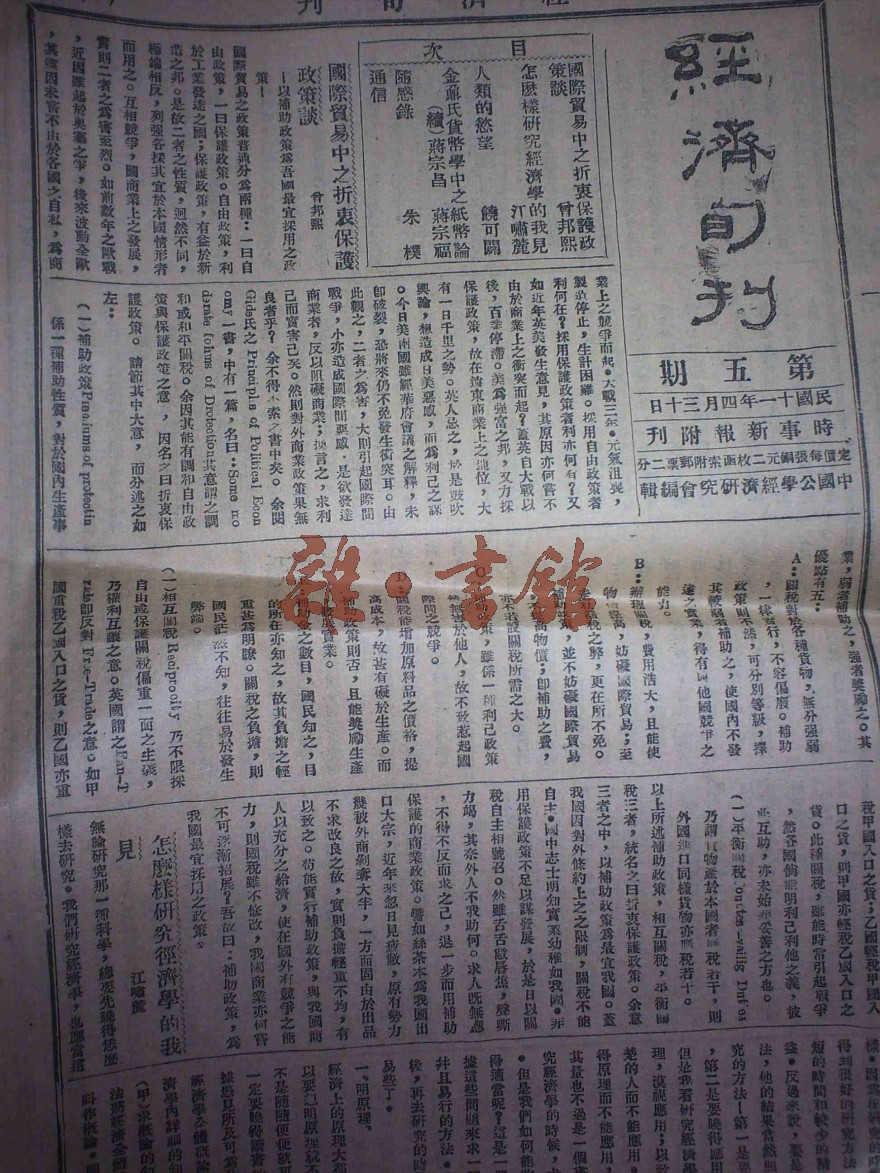 經濟旬刊
經濟旬刊
第五期
民國十一年四月三十日
時事新報附刊
定價每張銅元二枚函索附郵票二分
中國公學經濟研究會編輯
目次
國際貿易中之折衷保護政策談 曾邦熙
怎麼樣研究經濟學的我見 江嘯麓
人類的慾望 饒可闢
金鼐氏貨幣學中之紙幣論(續) 蔣宗昌 蔣宗福
隨感錄 朱樸
通信
國際貿易中之折衷保護
政策談 曾邦熙
—以補助政策爲吾國最宜採用之政
策—
國際貿易之政策普通分爲兩種:一曰自
由政策,一曰保護政策。自由政策,利
於工業發達之國;保護政策,有益於新
造之邦。是故二者之性質,迥然不同,
極端相反,列強各採其宜於本國情形者
而用之。互相競爭,圖商業上之發展,
實則二者之爲害至烈。如前數年之歐戰
,近因雖起於奧塞之爭,後來波動全歐
,其遠因未嘗不由於各國之自私,爲商
業上之競爭而起。大戰三年,元氣沮喪,
製造停止,生計困難。採用自由政策者
利何在?採用保護政策者利亦何有?又
如近年英美發生意見,其原因亦何嘗不
由於商業上之衝突而起?蓋英自大戰以
後,百業停滯。美爲強富之邦,又力採
保護政策,故在遠東商業上之地位,大
有一日千里之勢。英人忌之,於是鼓吹
輿論,想造成日美惡感,而爲利己之謀
。今日美兩國雖經華府會議之解釋,未
卽破裂,恐將來仍不免發生衝突耳。由
此觀之,二者之爲害,大則引起國際間
戰爭,小亦造成國際間惡感。是欲發達
商業者,反以阻礙商業;換言之,求利
己而實害己矣。然則對外商業政策果無
良者乎?余不得不索之書中矣。余閱
Gide氏之 Principles of Political Econ
omy 一書,中有一篇,名曰:Some mo
derate fohms of Drotection其意謂之調
和或和平關稅。余因其能有調和自由政
策與保護政策之意,因名之曰折衷保
護政策。請節其中大意,而分述之如
左:
(一)補助政策Premiums of protectin
係一種補助性質,對於國內生產事
業,弱者補助之,強者獎勵之。其
優點有五:
A:關稅對於各種貨物,無分強弱
,一律實行,不容偏廢。補助
政策則不然,可分別等級,擇
其較弱者補助之,使國內不發
達之實業,得有與他國競爭之
能力。
B:辦理關稅,費用浩大,且能使
物價提高,妨礙國際貿易;至
補助政策,並不妨礙國際貿易
亦不若設關稅所需之大。
際間之競爭。
D:關稅能增加原料品之價格,提
高成本,故甚有礙於生產。而
補助政策則否,且能獎勵生產
的所在亦知之,故其負擔之輕
重甚爲明瞭。關稅之負擔,則
國民茫然不知,往往易於發生
弊端。
(一)相互關稅 Reciprocity 乃不限採
自由或保護關稅偏重一面之主張,
乃權利互讓之意。英國謂之Fan-T
rab卽反對 Fre-Trado之意。如甲
國重稅乙國入口之貨,則乙國亦重
稅甲國入口之貨;乙國輕稅甲國入
口之貨,則甲國亦輕稅乙國入口之
貨。此種關稅,雖能時常引起戰爭
,然各國倘能明利己利他之義,彼
此互助,亦未始非妥善之方也。
(一)平衡關稅
乃謂貨物產於本國者關稅若干,則
外國進口同樣貨物亦關稅若干。
以上所述補助政策,相互關稅,平衡關
稅三者,統名之曰折衷保護政策。余意
三者之中,以補助政策爲最宜我國。蓋
我國因對外條約上之限制,關稅不能
自主。國中志士明知實業幼稚如我國,非
用保護政策不足以謀發展,於是日以關
稅自主相號召。然雖舌舌敝唇焦,聲嘶
力竭,其奈外人不我助何。求人旣無應
,不得不反而求之己,退一步而用補助
保護的商業政策。譬如絲茶本爲我國出
口大宗,近年來忽日見疲敝,原有勢力
幾被外商剝奪大半,一方面固由於出品
不求改良之故,實則負擔輕重不均,有
以致之。苟能實行補助政策,與我國商
人以充分之給濟,使在國外有競爭之能
力,則國稅雖不修改,我國商業亦何嘗
不可逐漸招展?吾故曰:補助政策,爲
我國最宜採用之政策。
怎麼樣研究徑濟學的我
見 江嘯麓
無論研究那一種科學,總要先曉得怎麼
樣去研究。我們研究經濟學,也應當這
得到很好的研究方法
短的時間和較少的
益。反過來說,要是
法,他的結果當然
究的方法—第一是
,第二是要曉得應用
但是我看研究經濟學
理,漠視應用;以致
楚的人而不能應用,
得原理而不能應用,
其量也不過是一個
究經濟學的時候,
。但是我們如何能
得適當呢?這是一
據這些問題來求一
井且易行的方法。
後,再去研究的時
易些了。
一、明原理、
經濟上的原理大都
以要記明原理就不
不是隨隨便便就可
一定要曉得讀書
據過見所及可爲
經濟學全體概論
濟學內詳細的知
(甲)求概論的知
法將經濟全體
叫作概論。
雜·書館